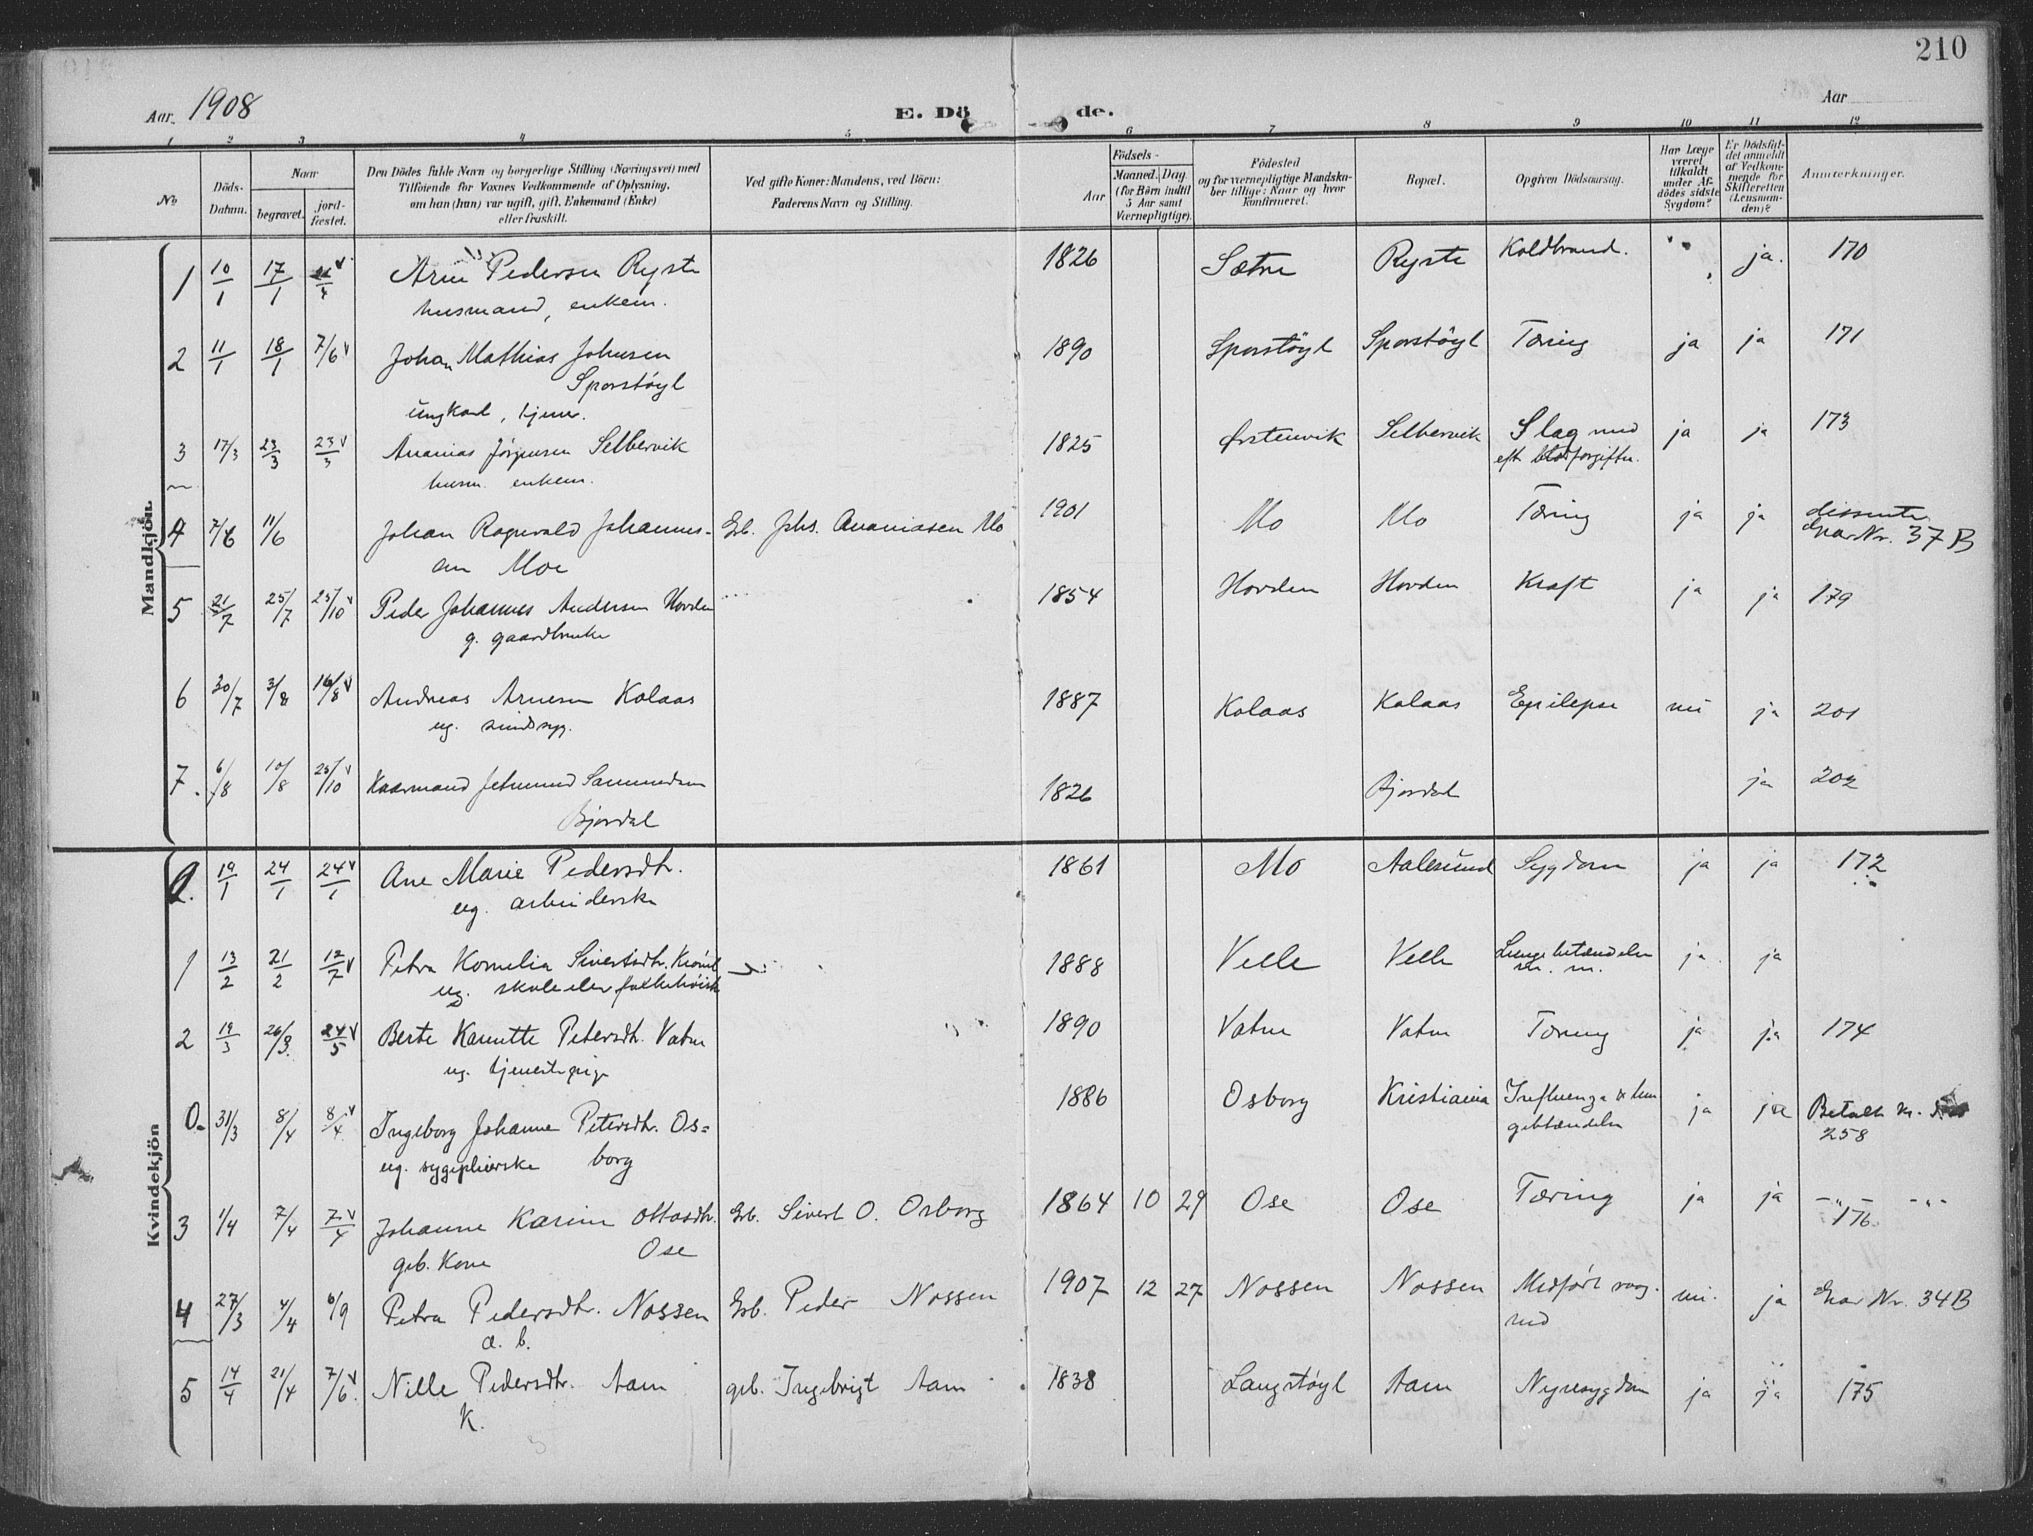 210
Aar 1908
E. Dö de.
Aar
1 2 3 4 5 6 7 8 9 10 11 12
No
Döds-Datum.
Naar
begravet.
jord-fæstet.
Den Dödes fulde Navn og borgerlige Stilling (Næringsvei) med
Tilföiende for Voxnes Vedkommende af Oplysning,
om han (hun) var ugift, gift, Enkemand (Enke)
eller fraskilt.
Ved gifte Koner: Mandens, ved Börn:
Faderens Navn og Stilling.
Födsels-
Aar
Maaned. Dag.
(for Börn indtil
5 Aar samt
Værnepligtige).
Födested
og for værnepligtige Mandska-
ber tillige: Naar og hvor
konfirmeret.
Bopæl.
Opgiven Dödsaarsag.
Har Læge
været
tilkaldt
under Af-
dödes sidste
Sygdom?
Er Dödsfal-
det anmeldt
af Vedkom-
mende for
Skifteretten
(Lensman-
den)?
Anmærkninger.
Mandkjön
1 10/1 17/1 Arne Pedersen Ryste 1826 Sætre Ryste Koldbrand. ja. 170
husmand, enkem.
2 11/1 18/1 7/6 v Johan Mathias Johnsen 1890 Sporstöyl Sporstöyl Tæring ja ja 171
Sporstöyl
ungkarl, tjener.
3 17/3 23/3 23/3 v Ananias Jörgensen Selbervik 1825 Ørstenvik Selbervik Slag med ja ja 173
husm. enkem. eft. blodforgiftn.
4 7/6 11/6 Johan Ragnvald Johannes- Gb. Johs. Ananiasen Mo 1901 Mo Mo Tæring ja ja dissenter
sen Moe Nr. 37 B
5 21/7 25/7 25/10 v Peder Johannes Andersen Hovden 1854 Hovden Hovden Kræft ja ja 179
g. gaardbruker
6 30/7 3/8 16/8 v Andreas Arnesen Kolaas 1887 Kolaas Kolaas Epilepse nei ja 201
ug. sindssyg.
7. 6/8 10/8 25/10 v Kaarmand Jetmund Samundsen 1826 Bjordal ja 202
Bjordal
Kvindekjön
0. 19/1 24/1 24/1 v Ane Marie Pedersdtr. 1861 Mo Aalesund Sygdom ja ja 172
ug. arbeiderske
1 13/2 21/2 12/7 v Petra Kornelia Sivertsdtr. 1888 Velle Velle Lungebetændelse ja ja
ug. m. m.
2 19/3 26/3. 24/5 v Berte Kanutte Petersdtr. Vatne 1890 Vatne Vatne Tæring ja ja 174
ug. tjenestepige
0. 31/3 8/4 8/4 v Ingeborg Johanne Petersdtr. Os= 1886 Osborg Kristiania Influenza & lun ja ja Betalt kr.
ug. sygepleierske borg gebetændelse 258
3 1/4 7/4 7/4 v Johanne Karine Ottosdtr. Gb. Sivert O. Osborg 1864 10 29 Ose Ose Tæring ja ja 176.
gb. Kone Ose
4 27/3 4/4 6/9 Petra Pedersdtr. Nossen Gb. Peder Nossen 1907 12 27 Nossen Nossen Medført svag- nei. ja Nr. 34 B
a. b. hed
5 14/4 21/4 7/6 v Nille Pedersdtr. Aam gb. Ingebrigt Aam 1838 Langstöyl Aam Nyresygdom ja ja 175
K.